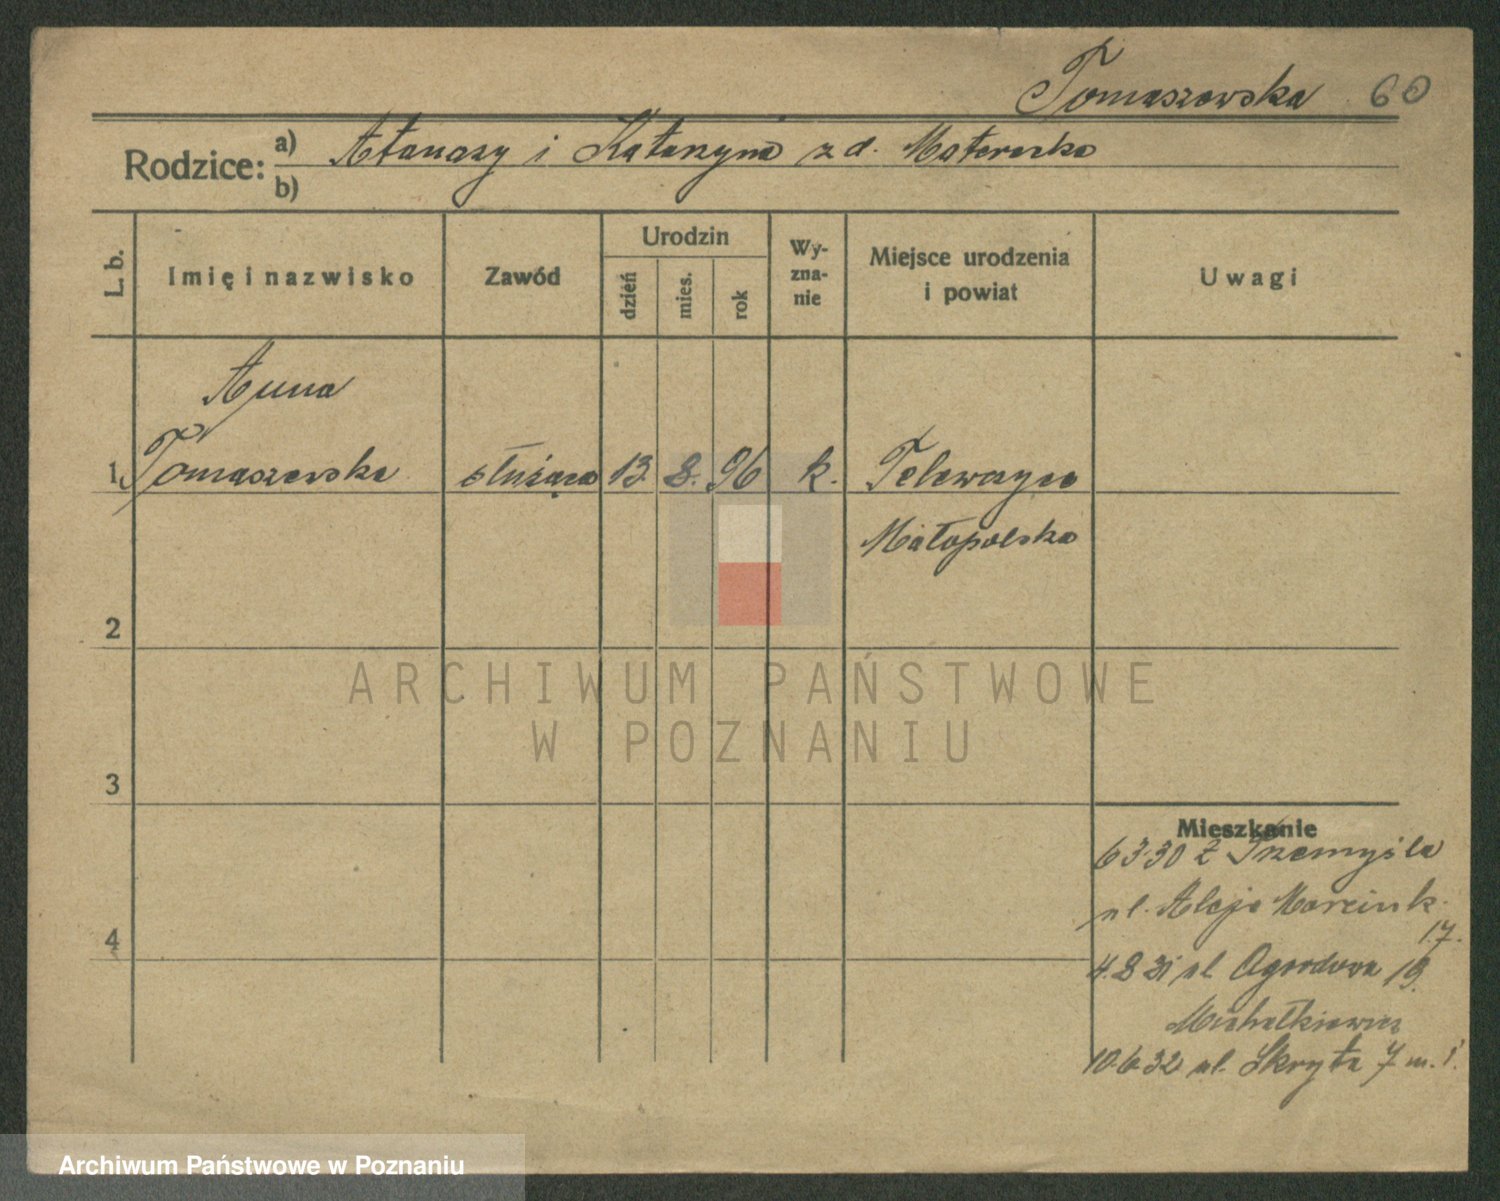 Tomaszewska 60
Rodzice: a) Atanazy i Katarzyna z d. Materszka
b)
L. b. Imię i nazwisko Zawód Urodzin dzień mies. rok Wyznanie Miejsce urodzenia i powiat Uwagi
Anna
1. Tomaszewska służąca 13. 8. 96 k. Telewzyce
Małopolska
2
ARCHIWUM PAŃSTWOWE
W POZNANIU
3
Mieszkanie
6 3 30 z Przemyśla
ul. Aleje Marcink.
17.
4
4. 8 31 ul Ogrodowa 19.
Michałkiewicz
10. 6 32 ul. Skryta 7 m. 1.
Archiwum Państwowe w Poznaniu